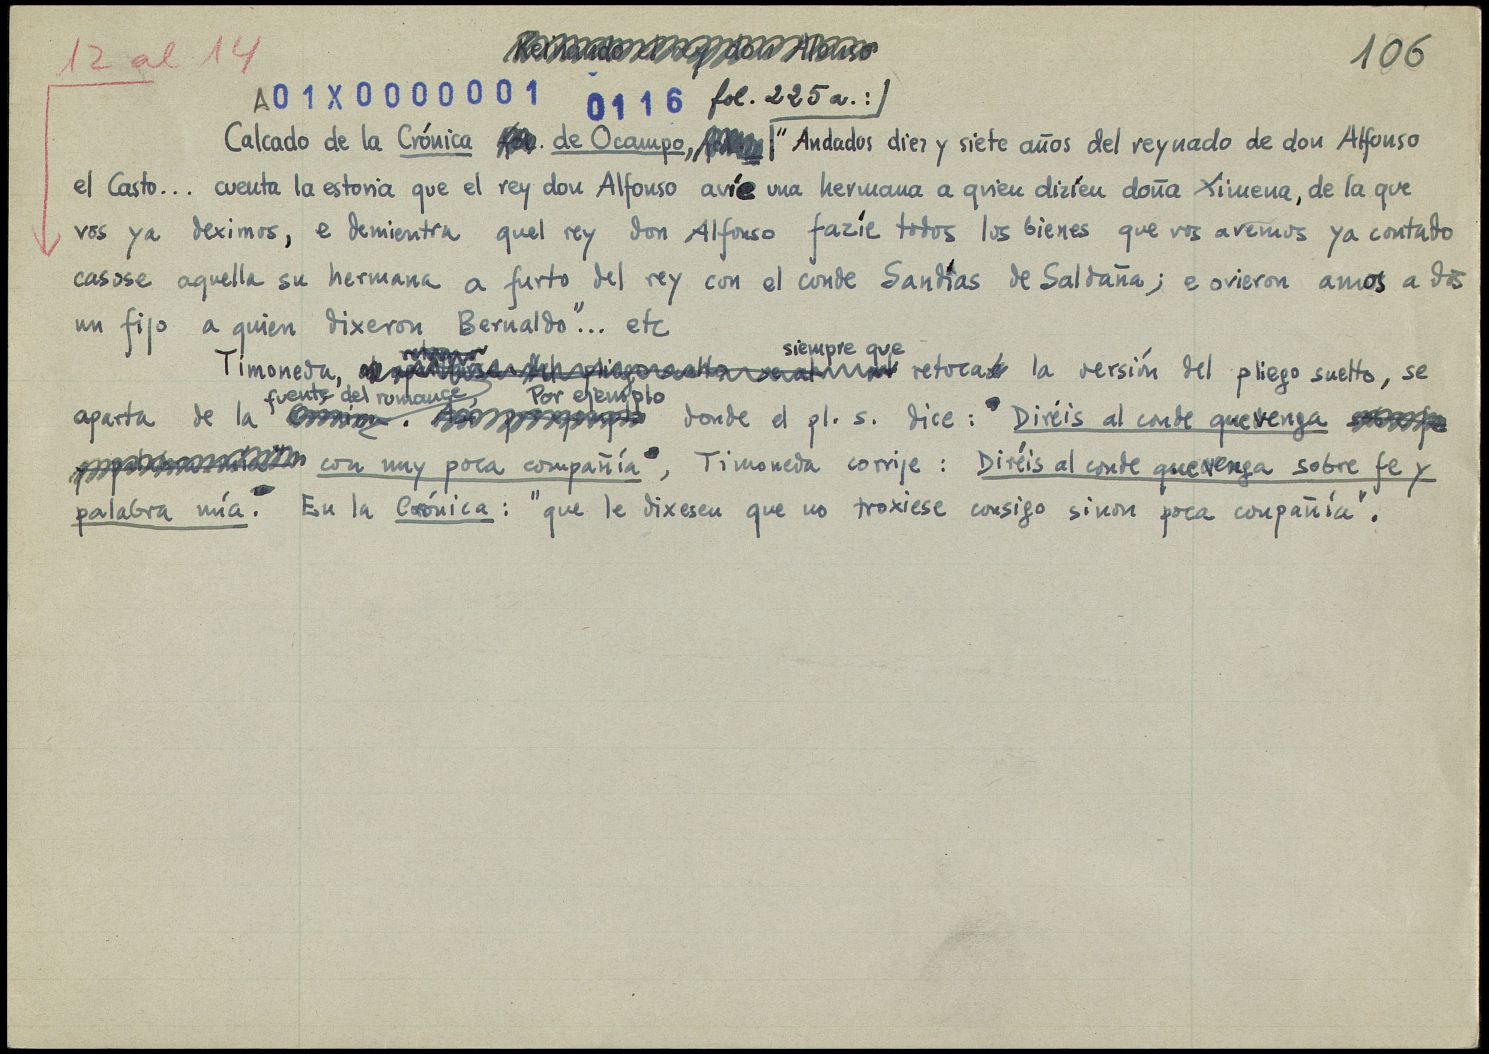 12 al 14
Reinando el rey don Alonso
106
A01X0000001 0116 fol. 225 a.:
Calcado de la Crónica de Ocampo, "Andados diez y siete años del reynado de don Alfonso
el Casto... cuenta la estoria que el rey don Alfonso avíe una hermana a quien dizíen doña Ximena, de la que
vos ya deximos, e demientra quel rey don Alfonso fazíe todos los bienes que vos avemos ya contado
casose aquella su hermana a furto del rey con el conde Sandías de Saldaña; e ovieron amos a dos
un fijo a quien dixeron Bernaldo"... etc
siempre que
Timoneda, retoca la versión del pliego suelto, se
fuente del romance Por ejemplo
aparta de la . donde el pl. s. dice: Diréis al conde que venga
con muy poca compañía", Timoneda corrije: Diréis al conde que venga sobre fe y
palabra mía." En la Crónica: "que le dixesen que no troxiese consigo sinon poca conpañía".